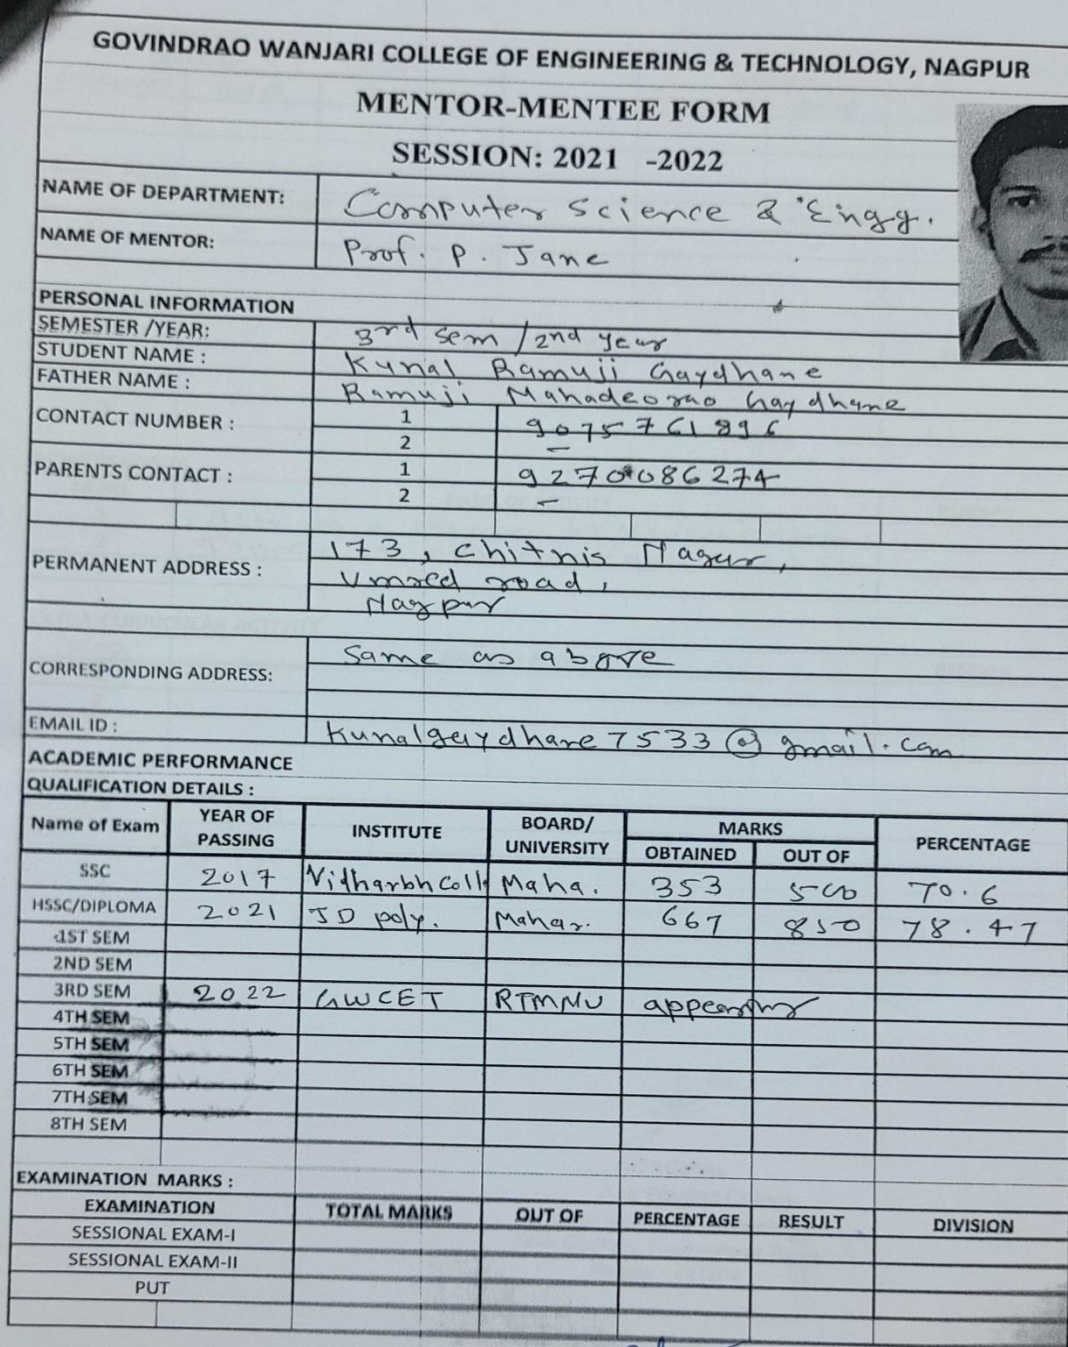 GOVINDRAO WANJARI COLLEGE OF ENGINEERING & TECHNOLOGY, NAGPUR
MENTOR-MENTEE FORM
SESSION: 2021 -2022
NAME OF DEPARTMENT: Computer Science & Engg.
NAME OF MENTOR: Prof. P. Jane
PERSONAL INFORMATION
SEMESTER /YEAR: 3rd sem / 2nd year
STUDENT NAME : Kunal Ramuji Gaydhane
FATHER NAME : Ramuji Mahadeorao Gaydhane
CONTACT NUMBER : 1 9075761896
2 –
PARENTS CONTACT : 1 9270086274
2 –
PERMANENT ADDRESS : 173, Chitnis Nagar,
Umred road,
Nagpur
CORRESPONDING ADDRESS: Same as above
EMAIL ID : kunalgaydhane7533@gmail.com
ACADEMIC PERFORMANCE
QUALIFICATION DETAILS :
Name of Exam YEAR OF PASSING INSTITUTE BOARD/ UNIVERSITY MARKS PERCENTAGE
OBTAINED OUT OF
SSC 2017 Vidharbh Coll Maha. 353 500 70.6
HSSC/DIPLOMA 2021 JD poly. Mahar. 667 850 78.47
1ST SEM
2ND SEM
3RD SEM 2022 GWCET RTMNU appearing
4TH SEM
5TH SEM
6TH SEM
7TH SEM
8TH SEM
EXAMINATION MARKS :
EXAMINATION TOTAL MARKS OUT OF PERCENTAGE RESULT DIVISION
SESSIONAL EXAM-I
SESSIONAL EXAM-II
PUT